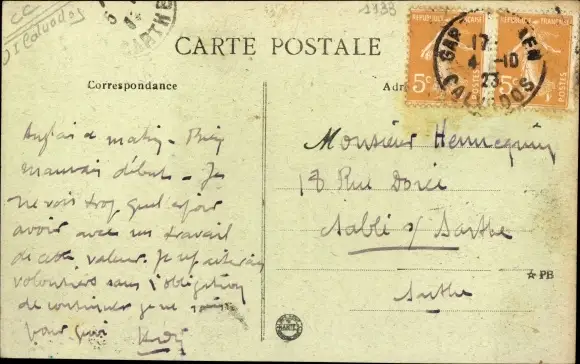 CC
Calvados
1933
SARTHE
CARTE POSTALE
REPUBLIQUE FRANCAISE
REPUBLIQUE FRANCAISE
5c
5c
GAR CAEN
17
4 -10
23
CALVADOS
Correspondance
Adr
Anglais ce matin - Bien
mauvais début - Je
ne vois trop quel espoir
avoir avec un travail
de cette valeur. Je
volontiers sans l'obligation
de continuer je ne
pour quoi
Monsieur Hennequin
18 Rue Dorée
Sablé s/ Sarthe
Sarthe
☆ PB